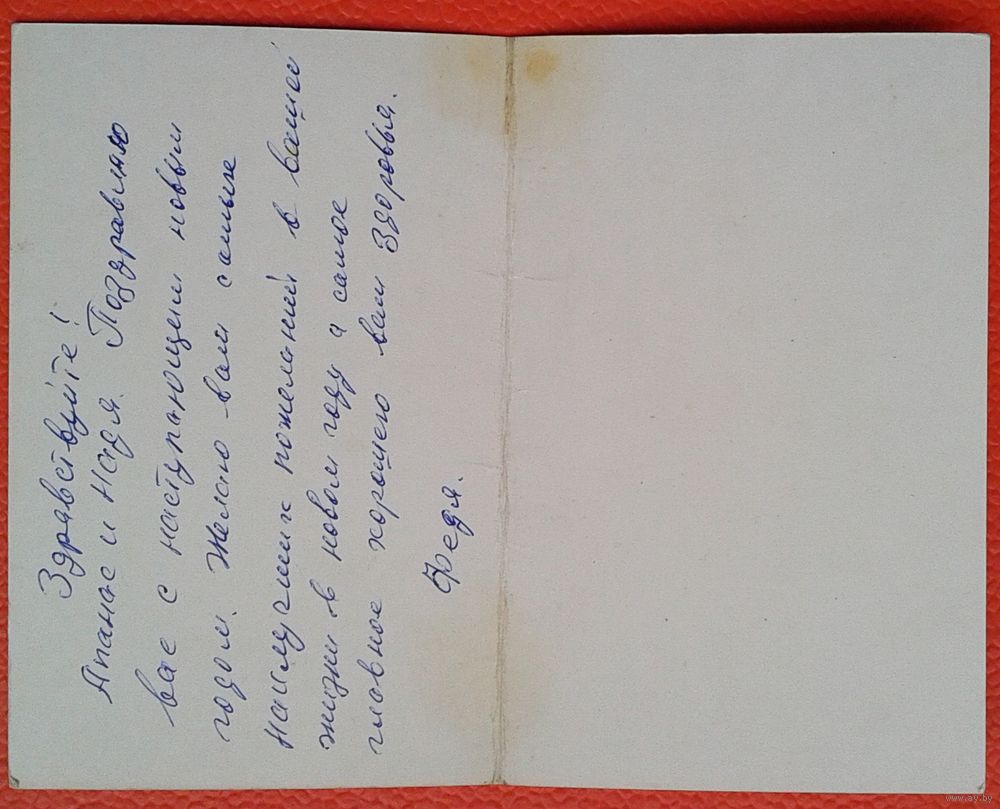 Здравствуйте!
Апанас и Надя. Поздравляю
вас с наступающем новым
годом. Желаю вам самых
наилучших пожеланий в вашей
жизни в новом году а самое
главное хорошего вам здоровья.
Федя.
www.ay.by